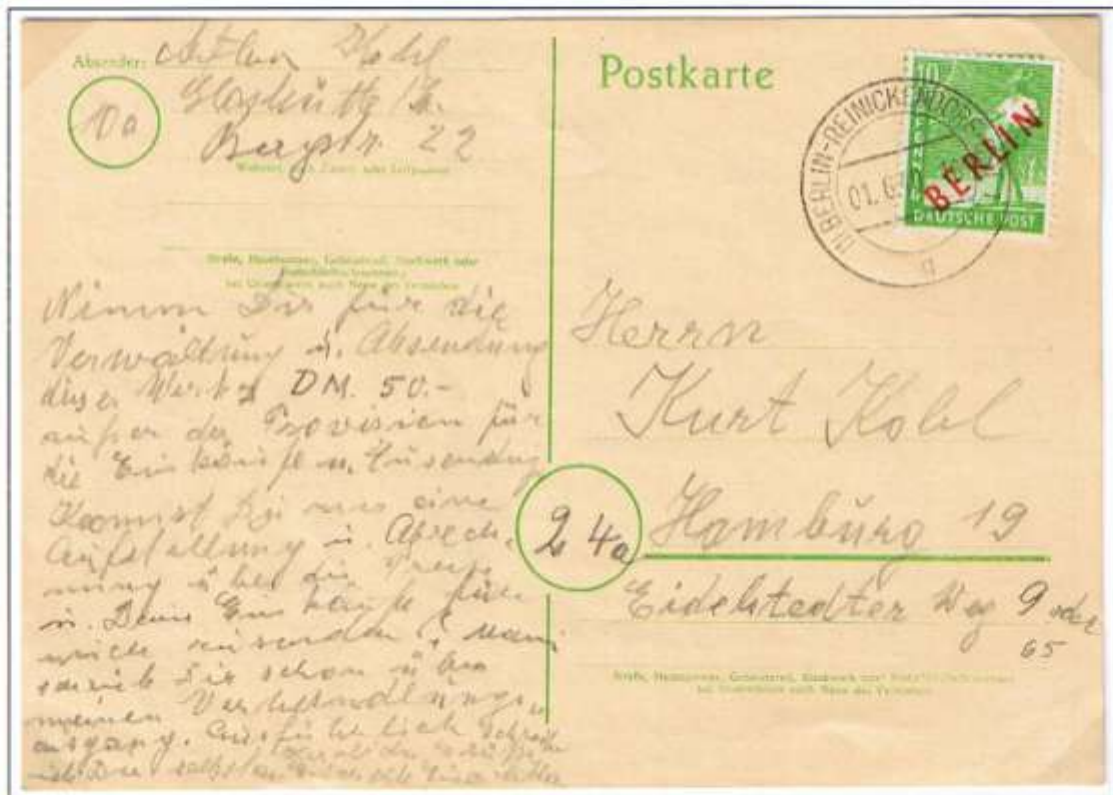 Absender:
Kohl
Glashütte
10a
Bergstr. 22
Straße, Hausnummer, Gebäudeteil, Stockwerk oder
Postschließfachnummer;
bei Untermietern auch Name des Vermieters
Nimm Dir für die
Verwaltung u. Absendung
dieser Werte DM. 50.-
außer der Provision für
die Einkäufe u. Zusendung
Kannst Du uns eine
Aufstellung u. Abrech-
nung über die
u. Deine Einkäufe für
mich zusenden?
schrieb Dir schon über
meinen
ausgang. Ausführlich
Postkarte
BERLIN-REINICKENDORF
01.6
10
PFENNIG
BERLIN
DEUTSCHE POST
Herrn
Kurt Kohl
24a Hamburg 19
Eidelstedter Weg 9 oder
65
Straße, Hausnummer, Gebäudeteil, Stockwerk oder Postschließfachnummer;
bei Untermietern auch Name des Vermieters